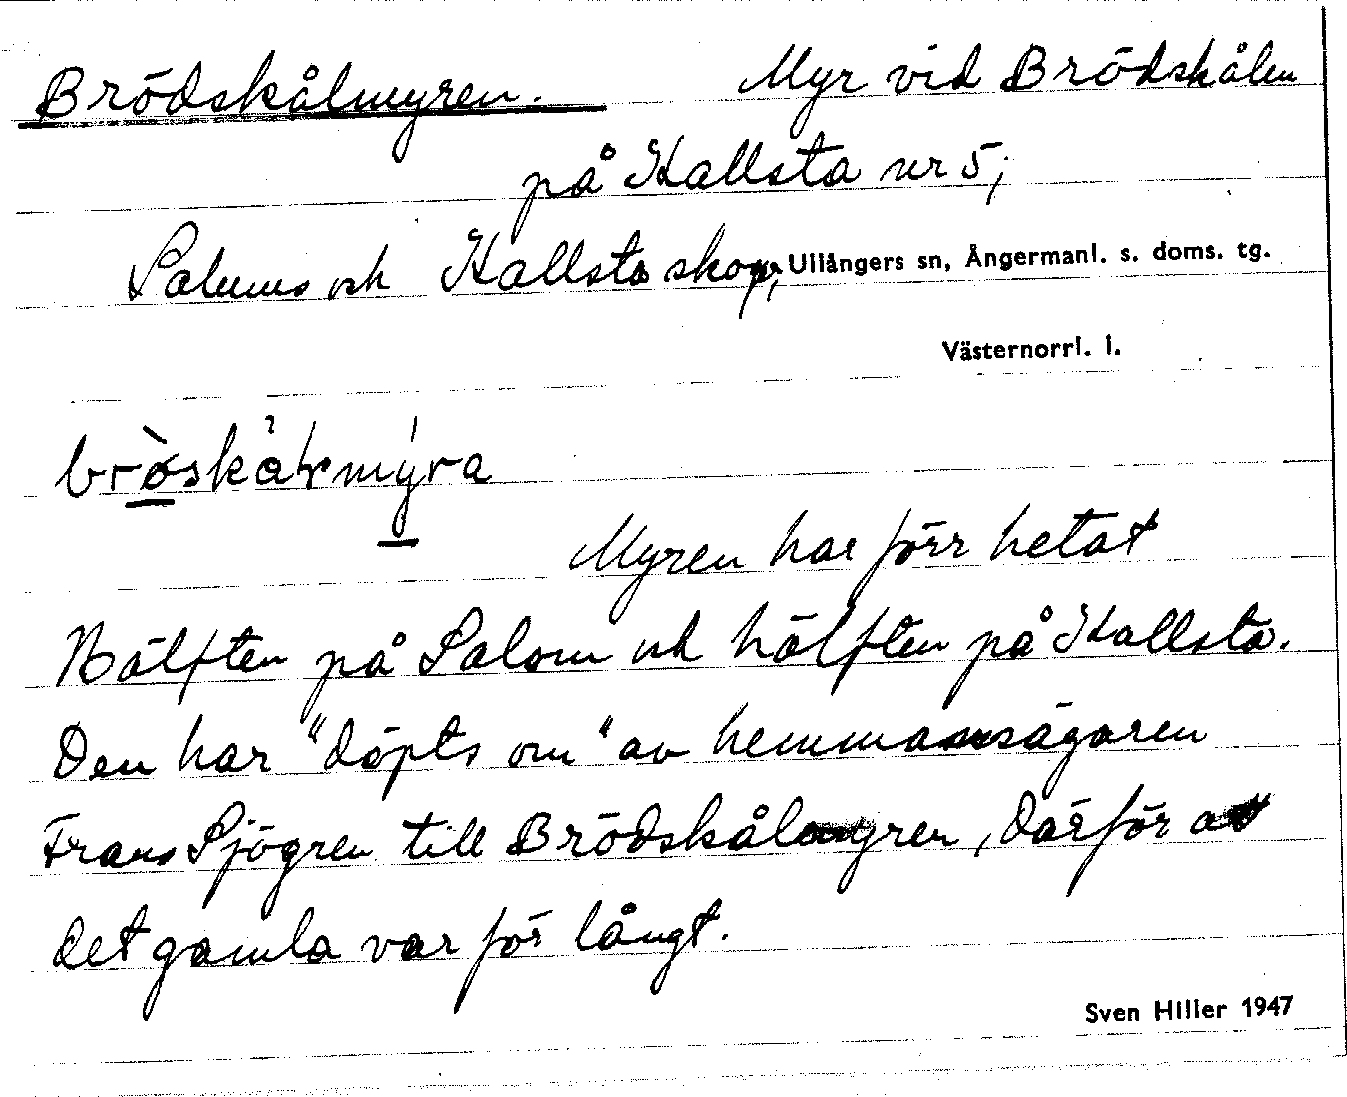 Brödskålmyren. Myr vid Brödskålen
på Hallsta nr 5;
Saloms och Hallsta skog, Ullångers sn, Ångermanl. s. doms. tg.
Västernorrl. l.
Myren har förr hetat
Hälften på Salom och hälften på Hallsta.
Den har "döpts om" av hemmansägaren
Frans Sjögren till Brödskålmyren, därför att
det gamla var för långt.
Sven Hiller 1947